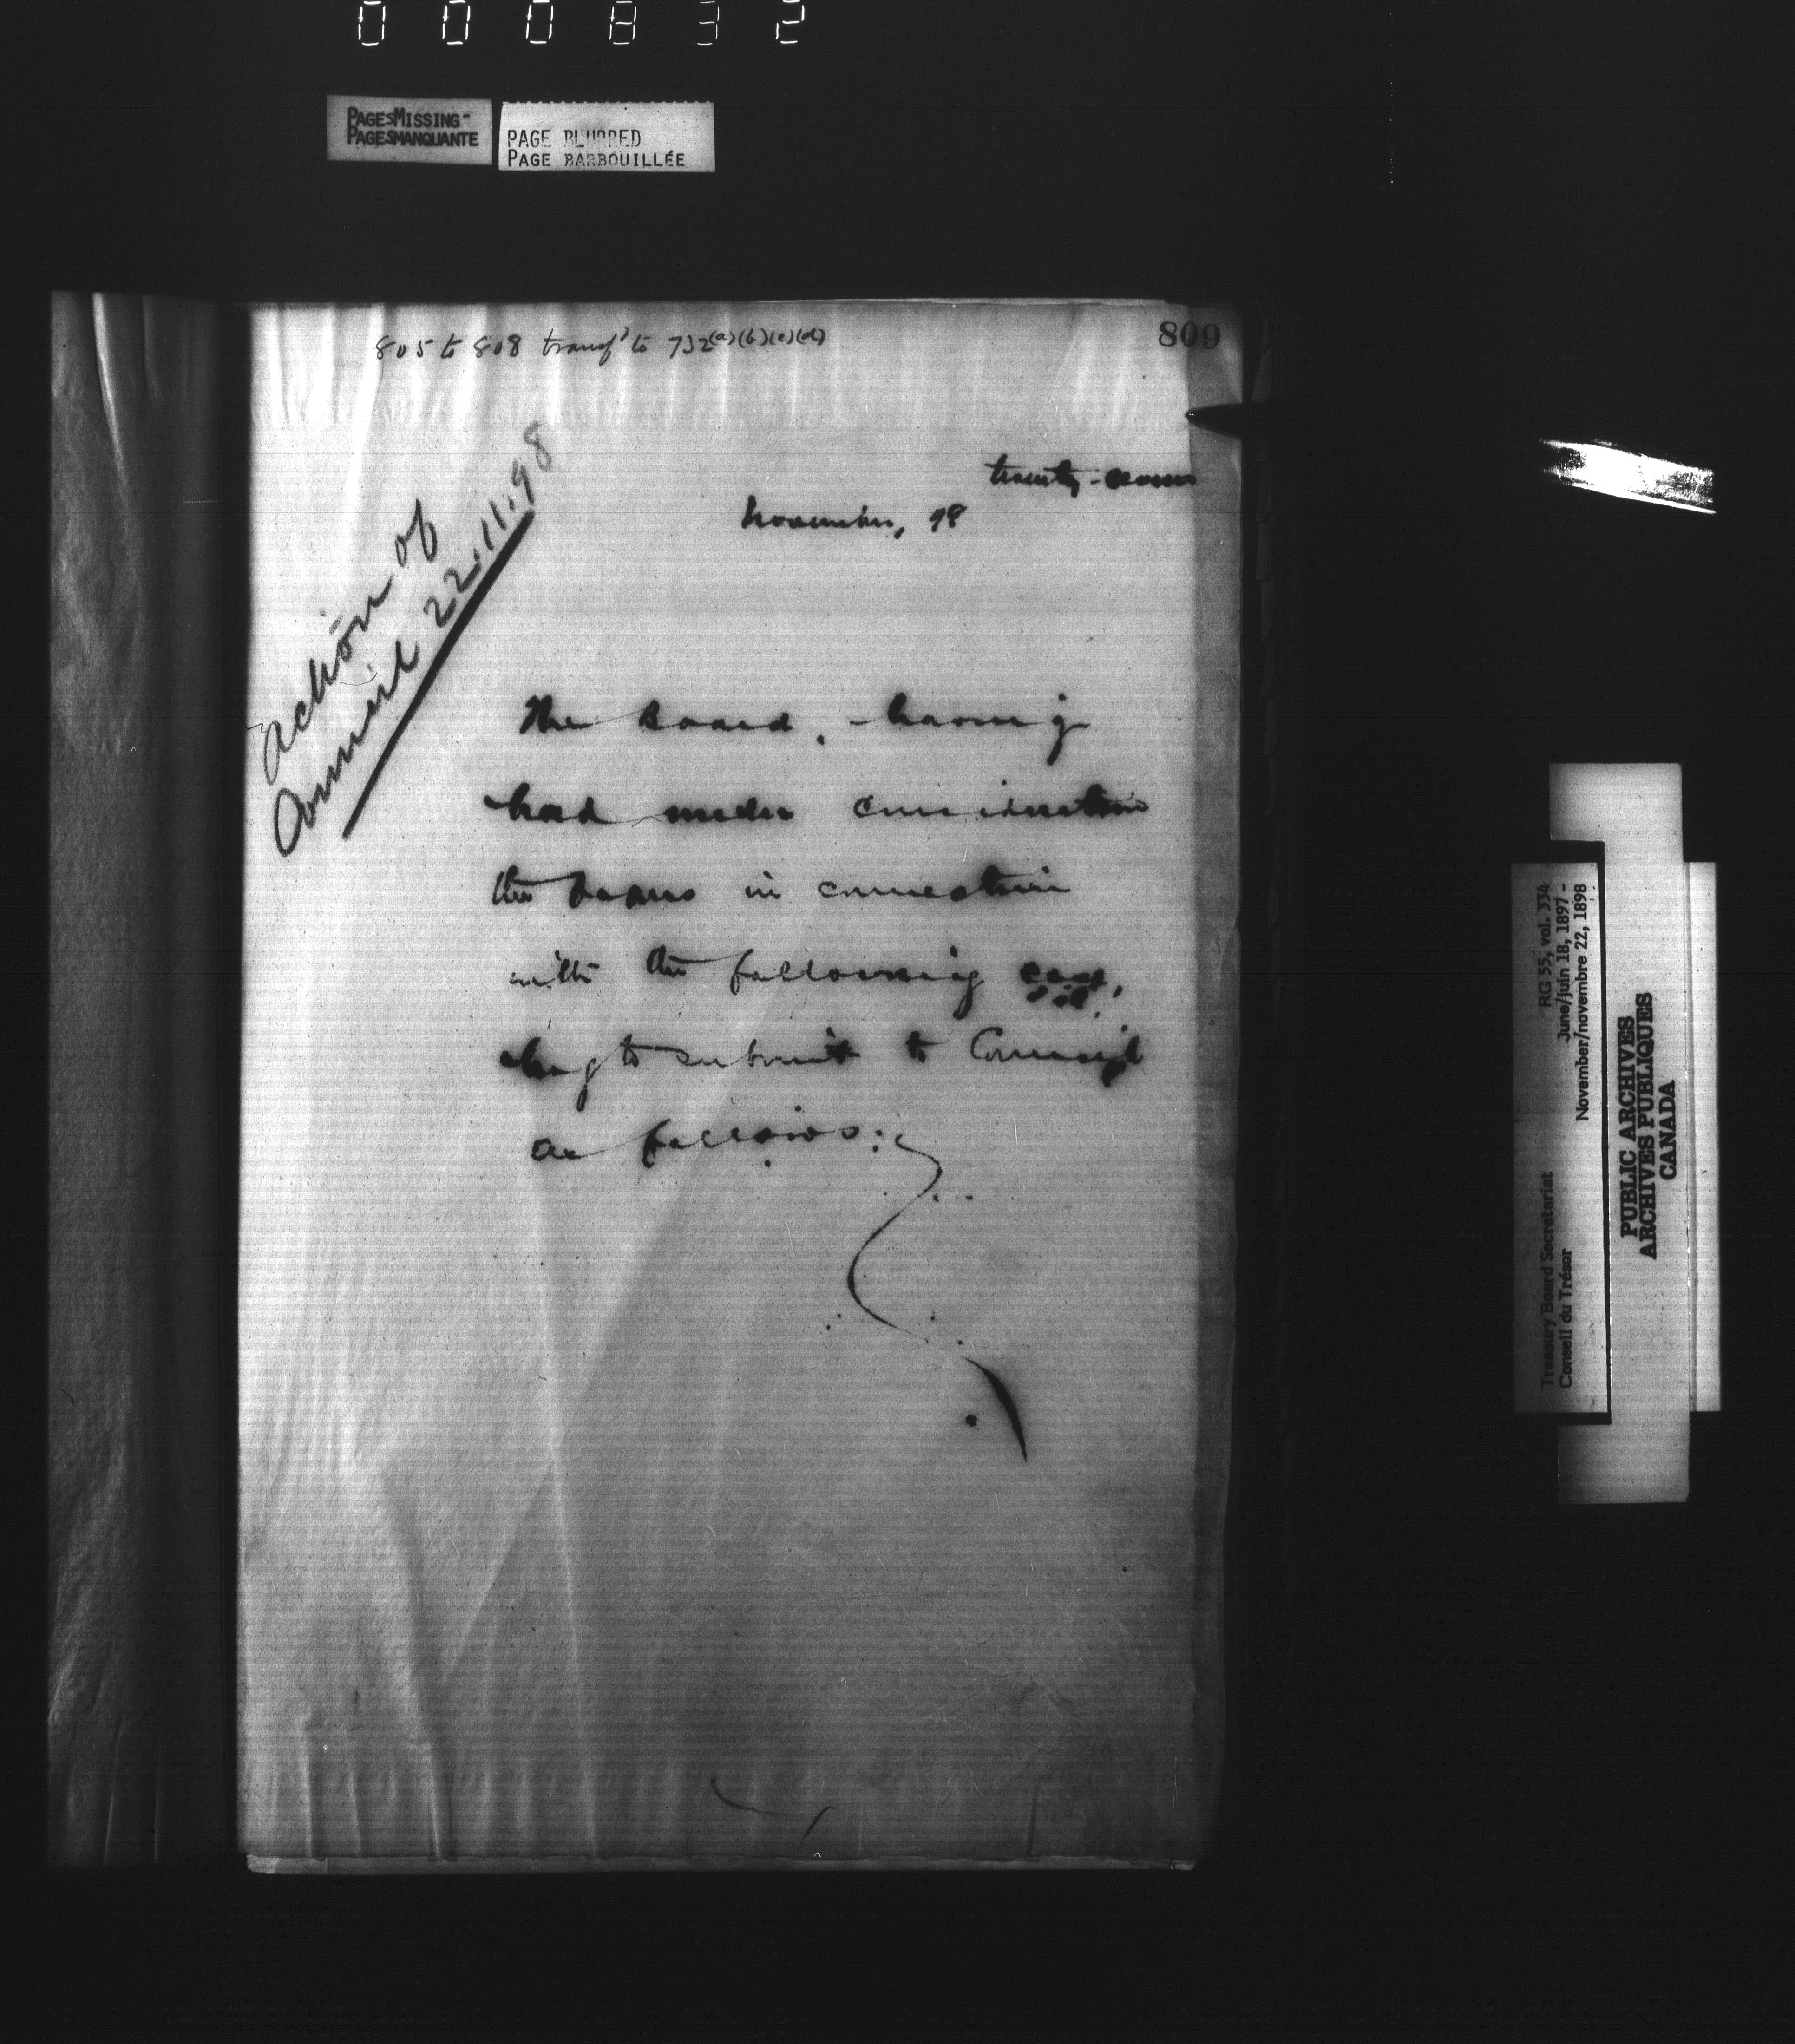 000832
PAGES MISSING -
PAGES MANQUANTE
PAGE BLURRED
PAGE BARBOUILLÉE
805 to 808 transf'd to 732(a)(b)(c)(d)
809
twenty-
November, 98
action of
Council 22.11.98
The Board, having
had under consideration
the in connection
with the following
beg to submit to Council
as follows:
Treasury Board Secretariat RG 55, vol. 334
Conseil du Trésor June/juin 18, 1897 -
November/novembre 22, 1898
PUBLIC ARCHIVES
ARCHIVES PUBLIQUES
CANADA